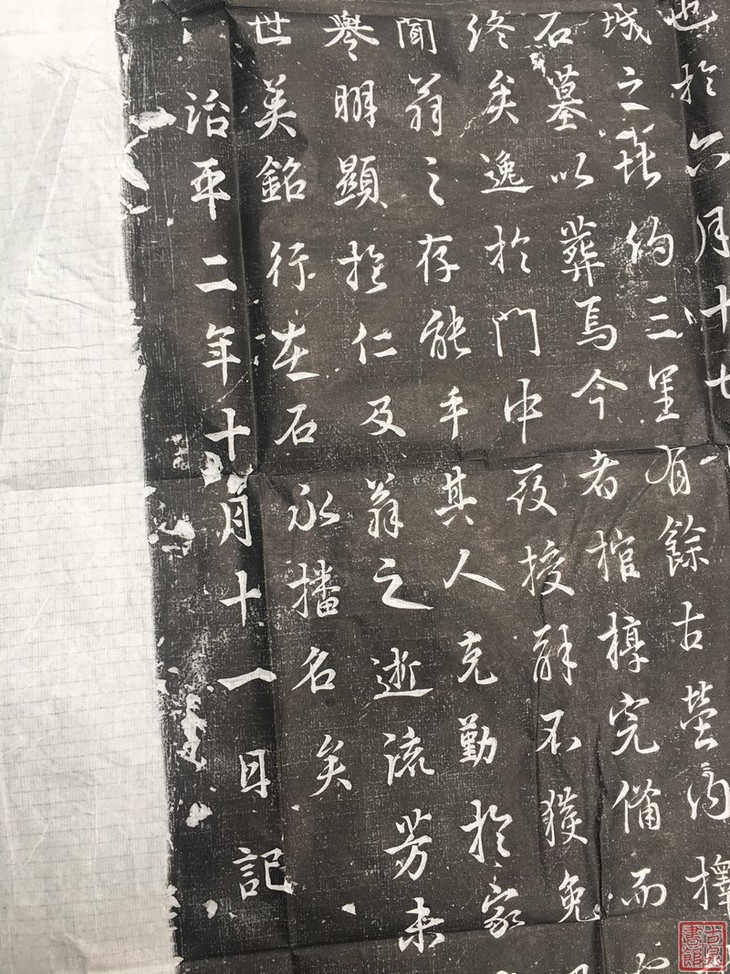 迆於六月十七
城之巽約三里有餘古塋内擇
石墓以葬焉今者棺椁完備而
終矣逸於門中毀授辭不獲免
聞翁之存能手其人克勤於家
譽明顯於仁及翁之逝流芳未
世美銘行在石永播名矣
治平二年十月十一日記